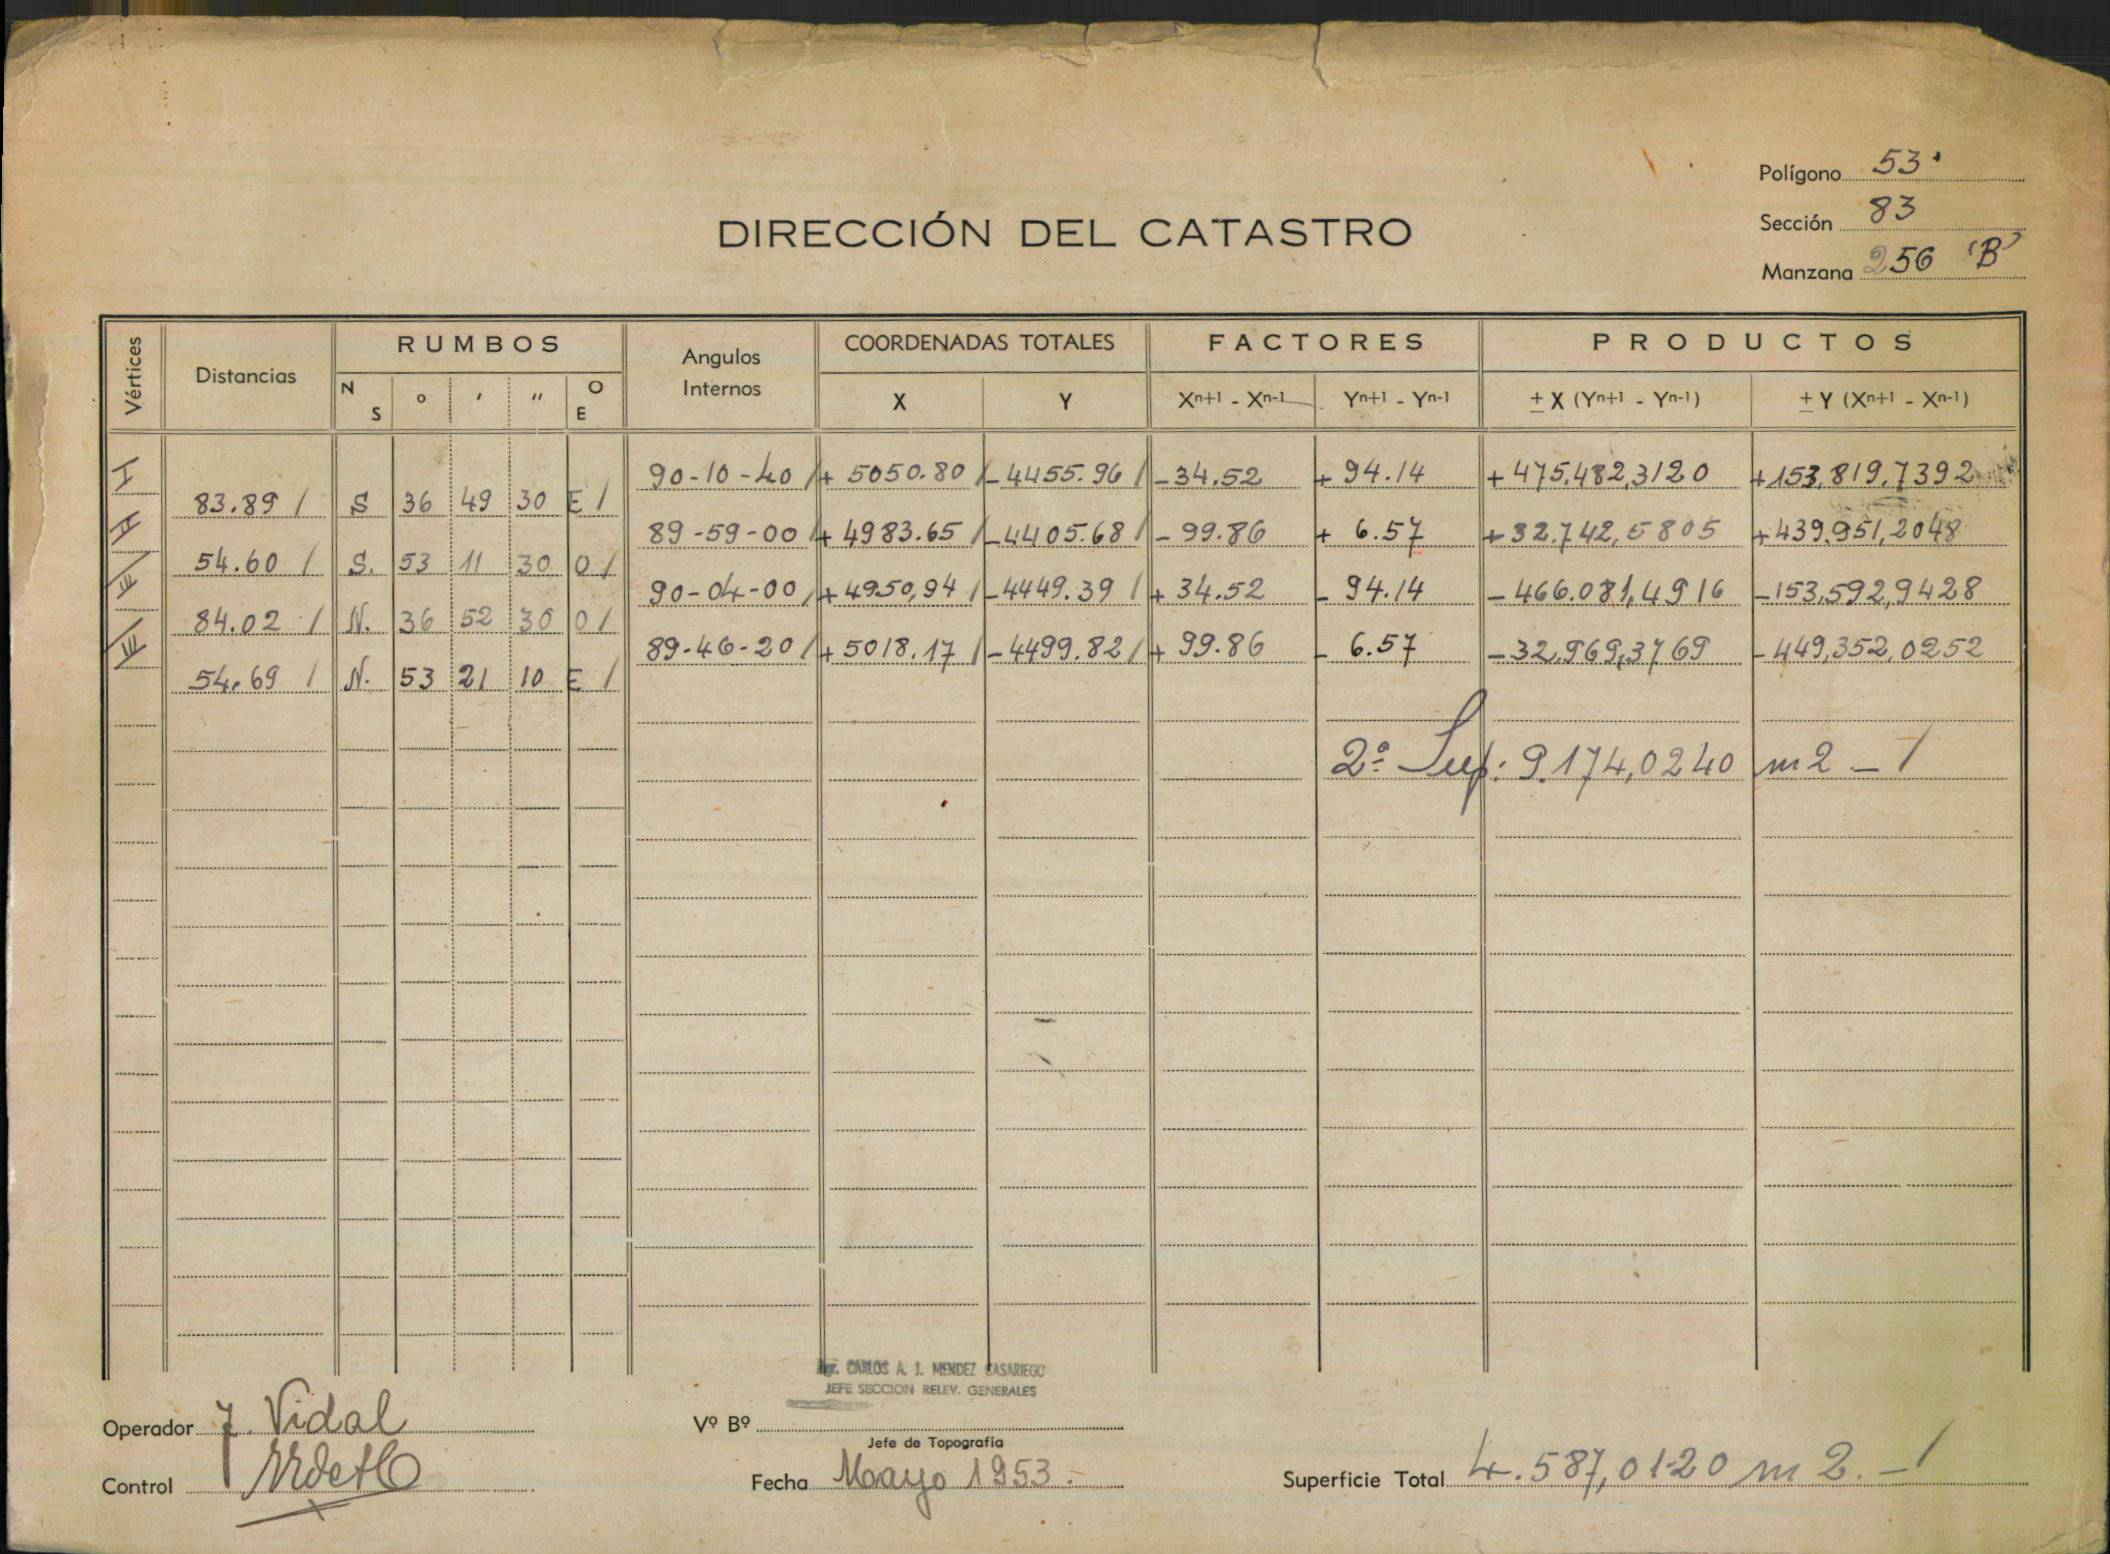 Polígono 53
Sección 83
Manzana 256 'B'
DIRECCIÓN DEL CATASTRO
Vértices Distancias RUMBOS Angulos Internos COORDENADAS TOTALES FACTORES PRODUCTOS
N S ° ' " O E X Y Xn+1 - Xn-1 Yn+1 - Yn-1 ± X (Yn+1 - Yn-1) ± Y (Xn+1 - Xn-1)
I 90-10-40 / + 5050.80 / -4455.96 / -34.52 + 94.14 +475.482,3120 +153,819,7392
83.89 / S 36 49 30 E /
II 89-59-00 / + 4983.65 / -4405.68 / - 99.86 + 6.57 +32.742,5805 +439.951,2048
54.60 / S. 53 11 30 O /
III 90-04-00 / + 4950,94 / -4449.39 / + 34.52 - 94.14 -466.081,4916 -153,592,9428
84.02 / N. 36 52 30 O /
IIII 89-46-20 / + 5018.17 / -4499.82 / + 99.86 - 6.57 -32,969,3769 -449,352,0252
54.69 / N. 53 21 10 E /
2ª Sup: 9.174,0240 m2 _ /
CARLOS A. J. MENDEZ CASARIEGO
JEFE SECCION RELEV. GENERALES
Operador J. Vidal
Vº Bº
Jefe de Topografía
Control
Fecha Mayo 1953.-
Superficie Total 4.587,0120 m2. - /